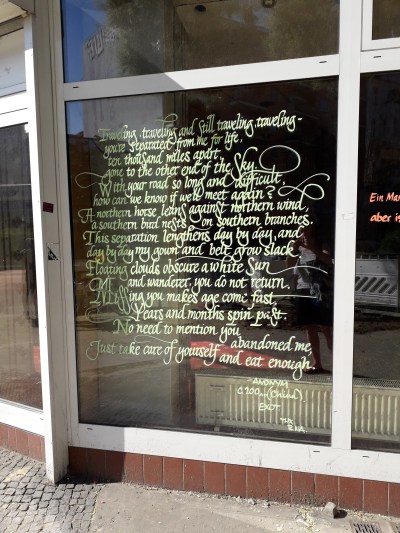 Traveling, traveling and still traveling, traveling-
you're separated from me for life,
ten thousand miles apart,
gone to the other end of the Sky.
With your road so long and difficult,
how can we know if we'll meet again?
A northern horse leans against northern wind,
a southern bird nests on southern branches.
This separation lengthens day by day, and
day by day my gown and belt grow slack
Floating clouds obscure a white Sun
and wanderer, you do not return.
Missing you makes age come fast,
Years and months spin past.
No need to mention you abandoned me,
Just take care of yourself and eat enough.
ANONYM
C 200 (China)
EXIT
Ein Man
aber is